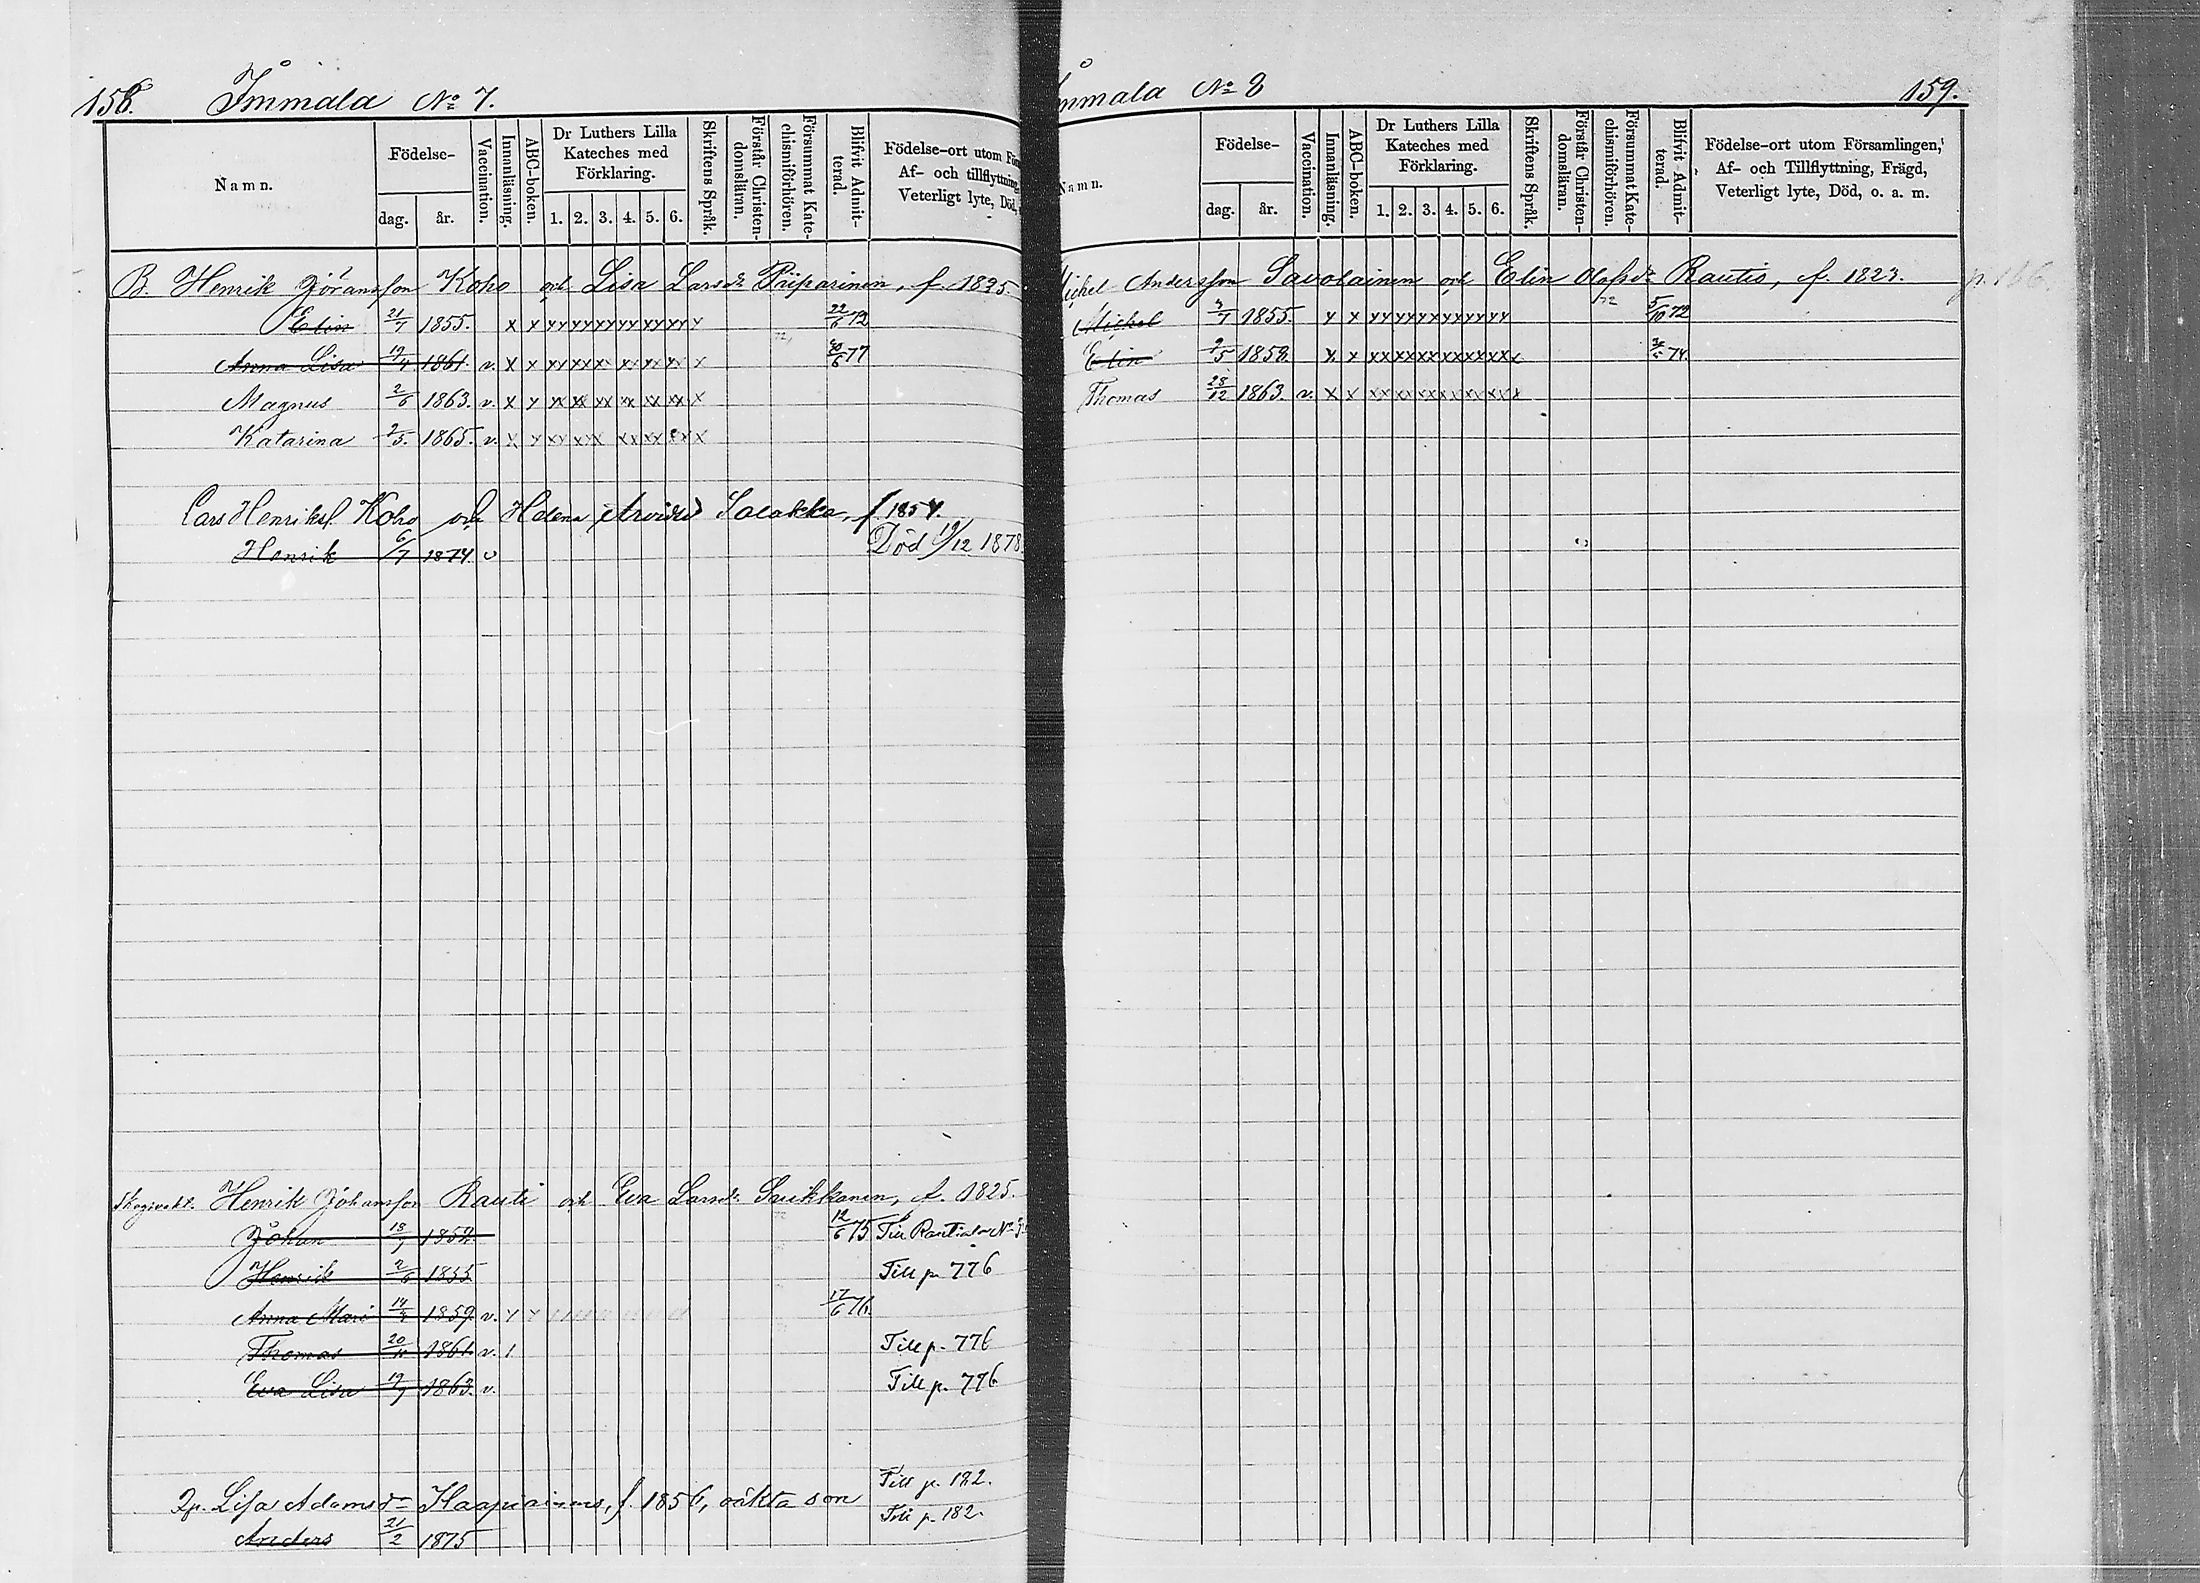 158. Immala No 7.
Namn.
Födelse-
dag. år.
Vaccination.
Innanläsning.
ABC-boken.
Dr Luthers Lilla
Kateches med
Förklaring.
1. 2. 3. 4. 5. 6.
Skriftens Språk.
Förstår Christen-
domsläran.
Försummat Kate-
chismiförhören.
Blifvit Admit-
terad.
Födelse-ort utom För
Af- och tillflyttning,
Veterligt lyte, Död,
B. Henrik Jöransson Koho och Lisa Larsdr Piiparinen, f. 1825.
Elin 21/7 1855. x x xx xx xx xx xx xx x 22/6 72
Anna Lisa 1861. v. x x xx xx xx xx xx xx x 30/6 77
Magnus 2/6 1863. v. x x xx xx xx xx xx xx x
Katarina 2/5. 1865. v. x x xx xx xx xx xx xx x
Lars Henrikss. Koho och Helena Arvidsd Salakka, f. 1854.
Henrik 6/7 1874. v Död 19/12 1878.
Skogvakt. Henrik Johansson Rauti och Eva Larsdr Suikkanen, f. 1825.
Johan 1852. 12/6 75 Till Rautiala No
Henrik 1855 Till p. 776
Anna Mari 1859. v. x x 17/6 76.
Thomas 1861. v. 1 Till p. 776
Eva Lisa 1863. v. Till p. 776
Till p. 182.
Qp. Lisa Adamsdr Haapiainens, f. 1856, oäkta son
Till p. 182.
Anders 21/2 1875
mmala No 8 159.
Namn.
Födelse-
dag. år.
Vaccination.
Innanläsning.
ABC-boken.
Dr Luthers Lilla
Kateches med
Förklaring.
1. 2. 3. 4. 5. 6.
Skriftens Språk.
Förstår Christen-
domsläran.
Försummat Kate-
chismiförhören.
Blifvit Admit-
terad.
Födelse-ort utom Församlingen,
Af- och Tillflyttning, Frägd,
Veterligt lyte, Död, o. a. m.
ichel Andersson Savolainen och Elin Olofsdr Rautis, f. 1823. p. 186.
Michel 1855. x x xx xx xx xx xx xx 72 5/10 72
Elin 9/5 1858 x x xx xx xx xx xx xx x 74
Thomas 28/12 1863. v. x x xx xx xx xx xx xx x